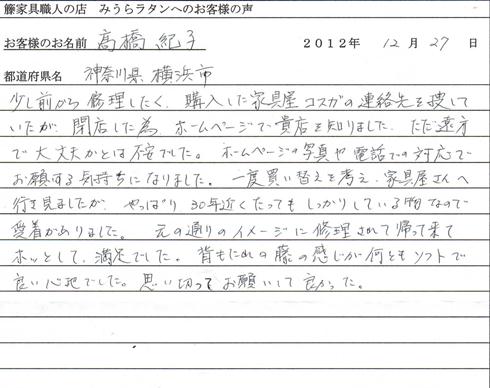 籐家具職人の店　みうらラタンへのお客様の声
お客様のお名前　高橋 紀子　２０１２年　12 月　27 日
都道府県名　神奈川県 横浜市
少し前から修理したく、購入した家具屋コスガの連絡先を捜して
いたが、閉店した為、ホームページで貴店を知りました。ただ遠方
で大丈夫かとは不安でした。ホームページの写真や電話での対応で
お願する気持ちになりました。一度買い替えを考え、家具屋さんへ
行き見ましたが、やっぱり30年近くたってもしっかりしている物なので
愛着がありました。元の通りのイメージに修理されて帰って来て
ホッとして、満足でした。背もたれの藤の感じが何ともソフトで
良い心地でした。思い切ってお願いして良かった。